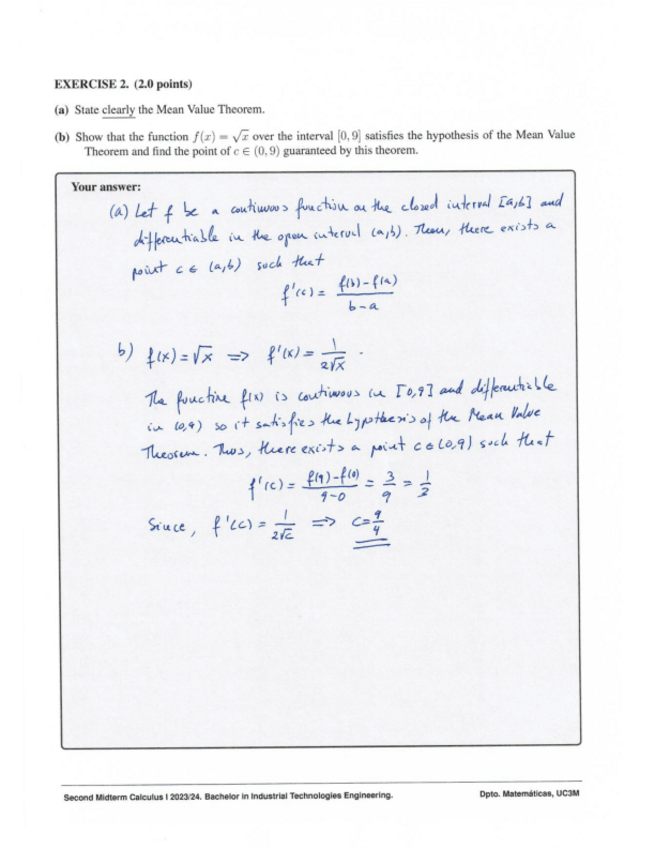 EXERCISE 2. (2.0 points)
(a) State clearly the Mean Value Theorem.
(b) Show that the function f(x) = √x over the interval [0, 9] satisfies the hypothesis of the Mean Value
Theorem and find the point of c ∈ (0, 9) guaranteed by this theorem.
Your answer:
(a) Let f be a continuous function on the closed interval [a,b] and
differentiable in the open interval (a,b). Then, there exists a
point c ∈ (a,b) such that
f'(c) = (f(b) - f(a)) / (b - a)
b) f(x) = √x ⟹ f'(x) = 1 / (2√x) .
The function f(x) is continuous in [0,9] and differentiable
in (0,9) so it satisfies the hypothesis of the Mean Value
Theorem. Thus, there exists a point c ∈ (0,9) such that
f'(c) = (f(9) - f(0)) / (9 - 0) = 3/9 = 1/3
Since, f'(c) = 1 / (2√c) ⟹ c = 9/4
Second Midterm Calculus I 2023/24. Bachelor in Industrial Technologies Engineering.
Dpto. Matemáticas, UC3M